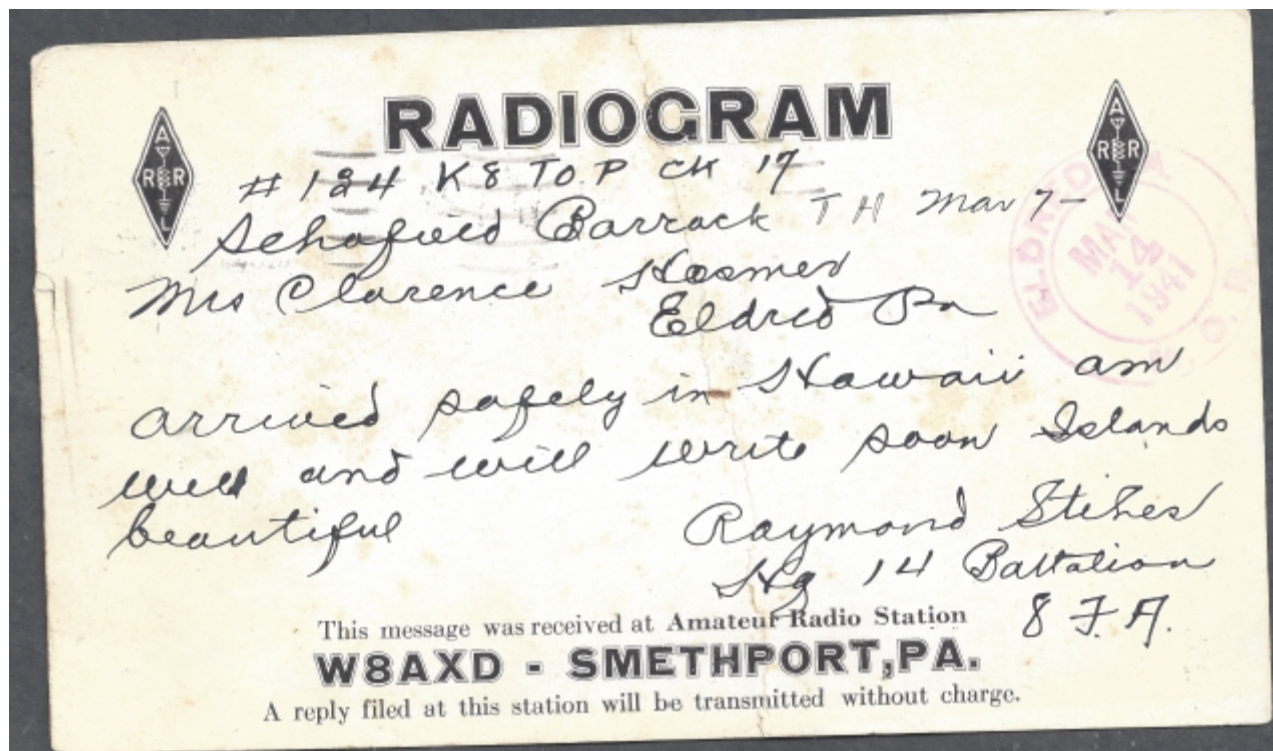 RADIOGRAM
ARRL
ARRL
# 124 K8 TOP CK 17
Schofield Barrack TH Mar 7-
Mrs Clarence Hosmer
Eldred Pa
ELDRED
MAR
14
1941
arrived safely in Hawaii am
well and will write soon Islands
beautiful
Raymond
Hq 14 Battalion
8 F.A.
This message was received at Amateur Radio Station
W8AXD - SMETHPORT,PA.
A reply filed at this station will be transmitted without charge.